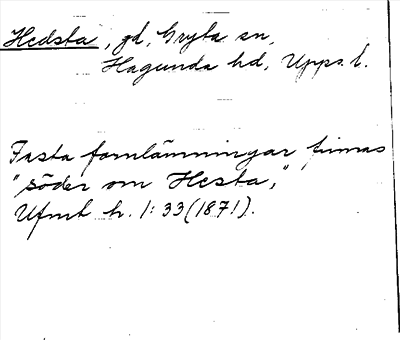 Hedsta, gd, Gryta sn,
Hagunda hd, Upps. l.
Fasta fornlämningar finnas
"söder om Hesta,"
Ufmt h. 1: 33 (1871).